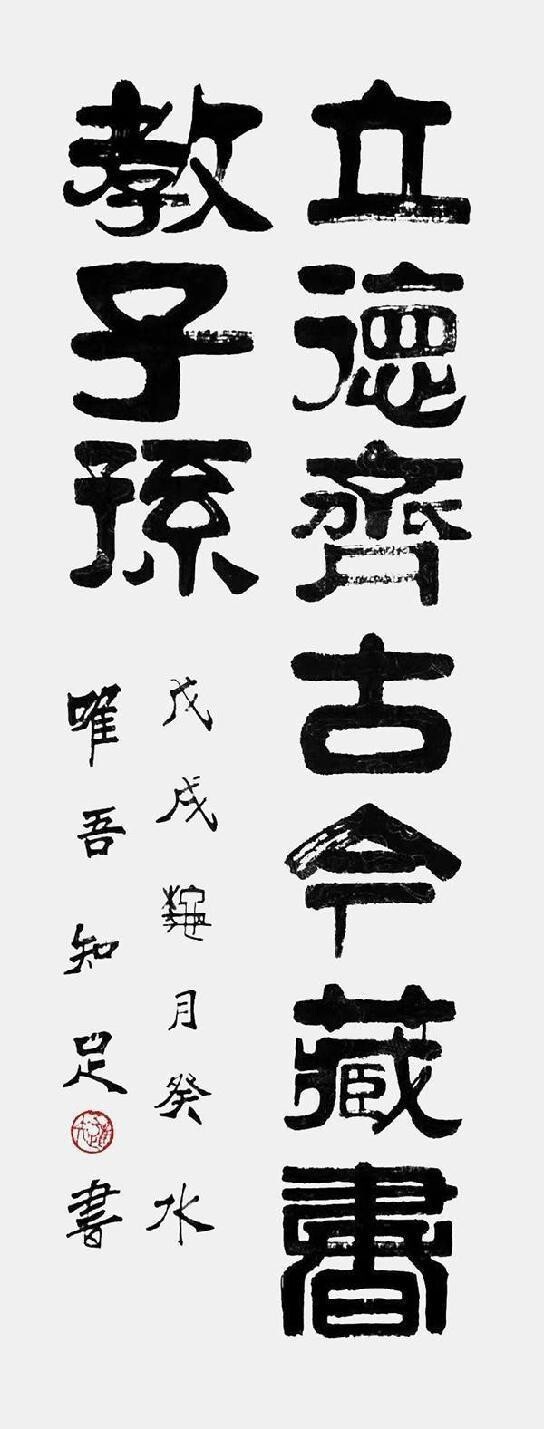 立德齊古今藏書
教子孫
戊戌龝月癸水
唯吾知足書